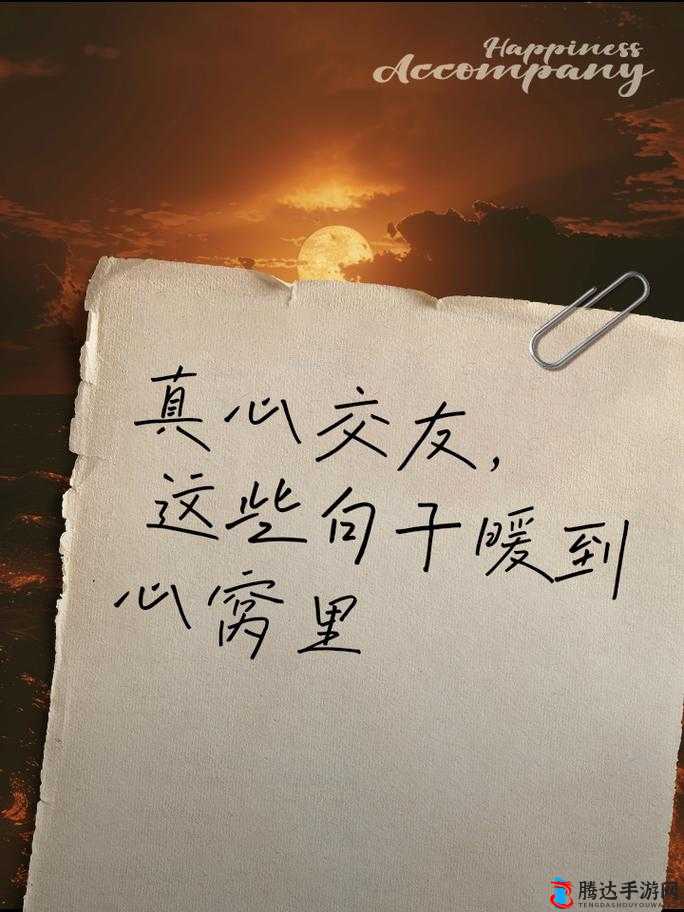 Happiness
Accompany
真心交友，
这些句子暖到
心窝里
腾达手游网
TENGDASHOUYOUWANG